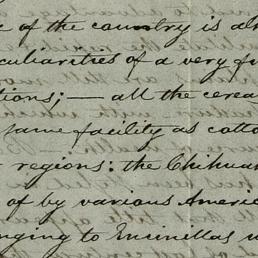 e of the country is al
culiarities of a very f
tions; — all the cerea
same facility as cotto
regions: the Chihua
of by various Americ
nging to Encinillas w